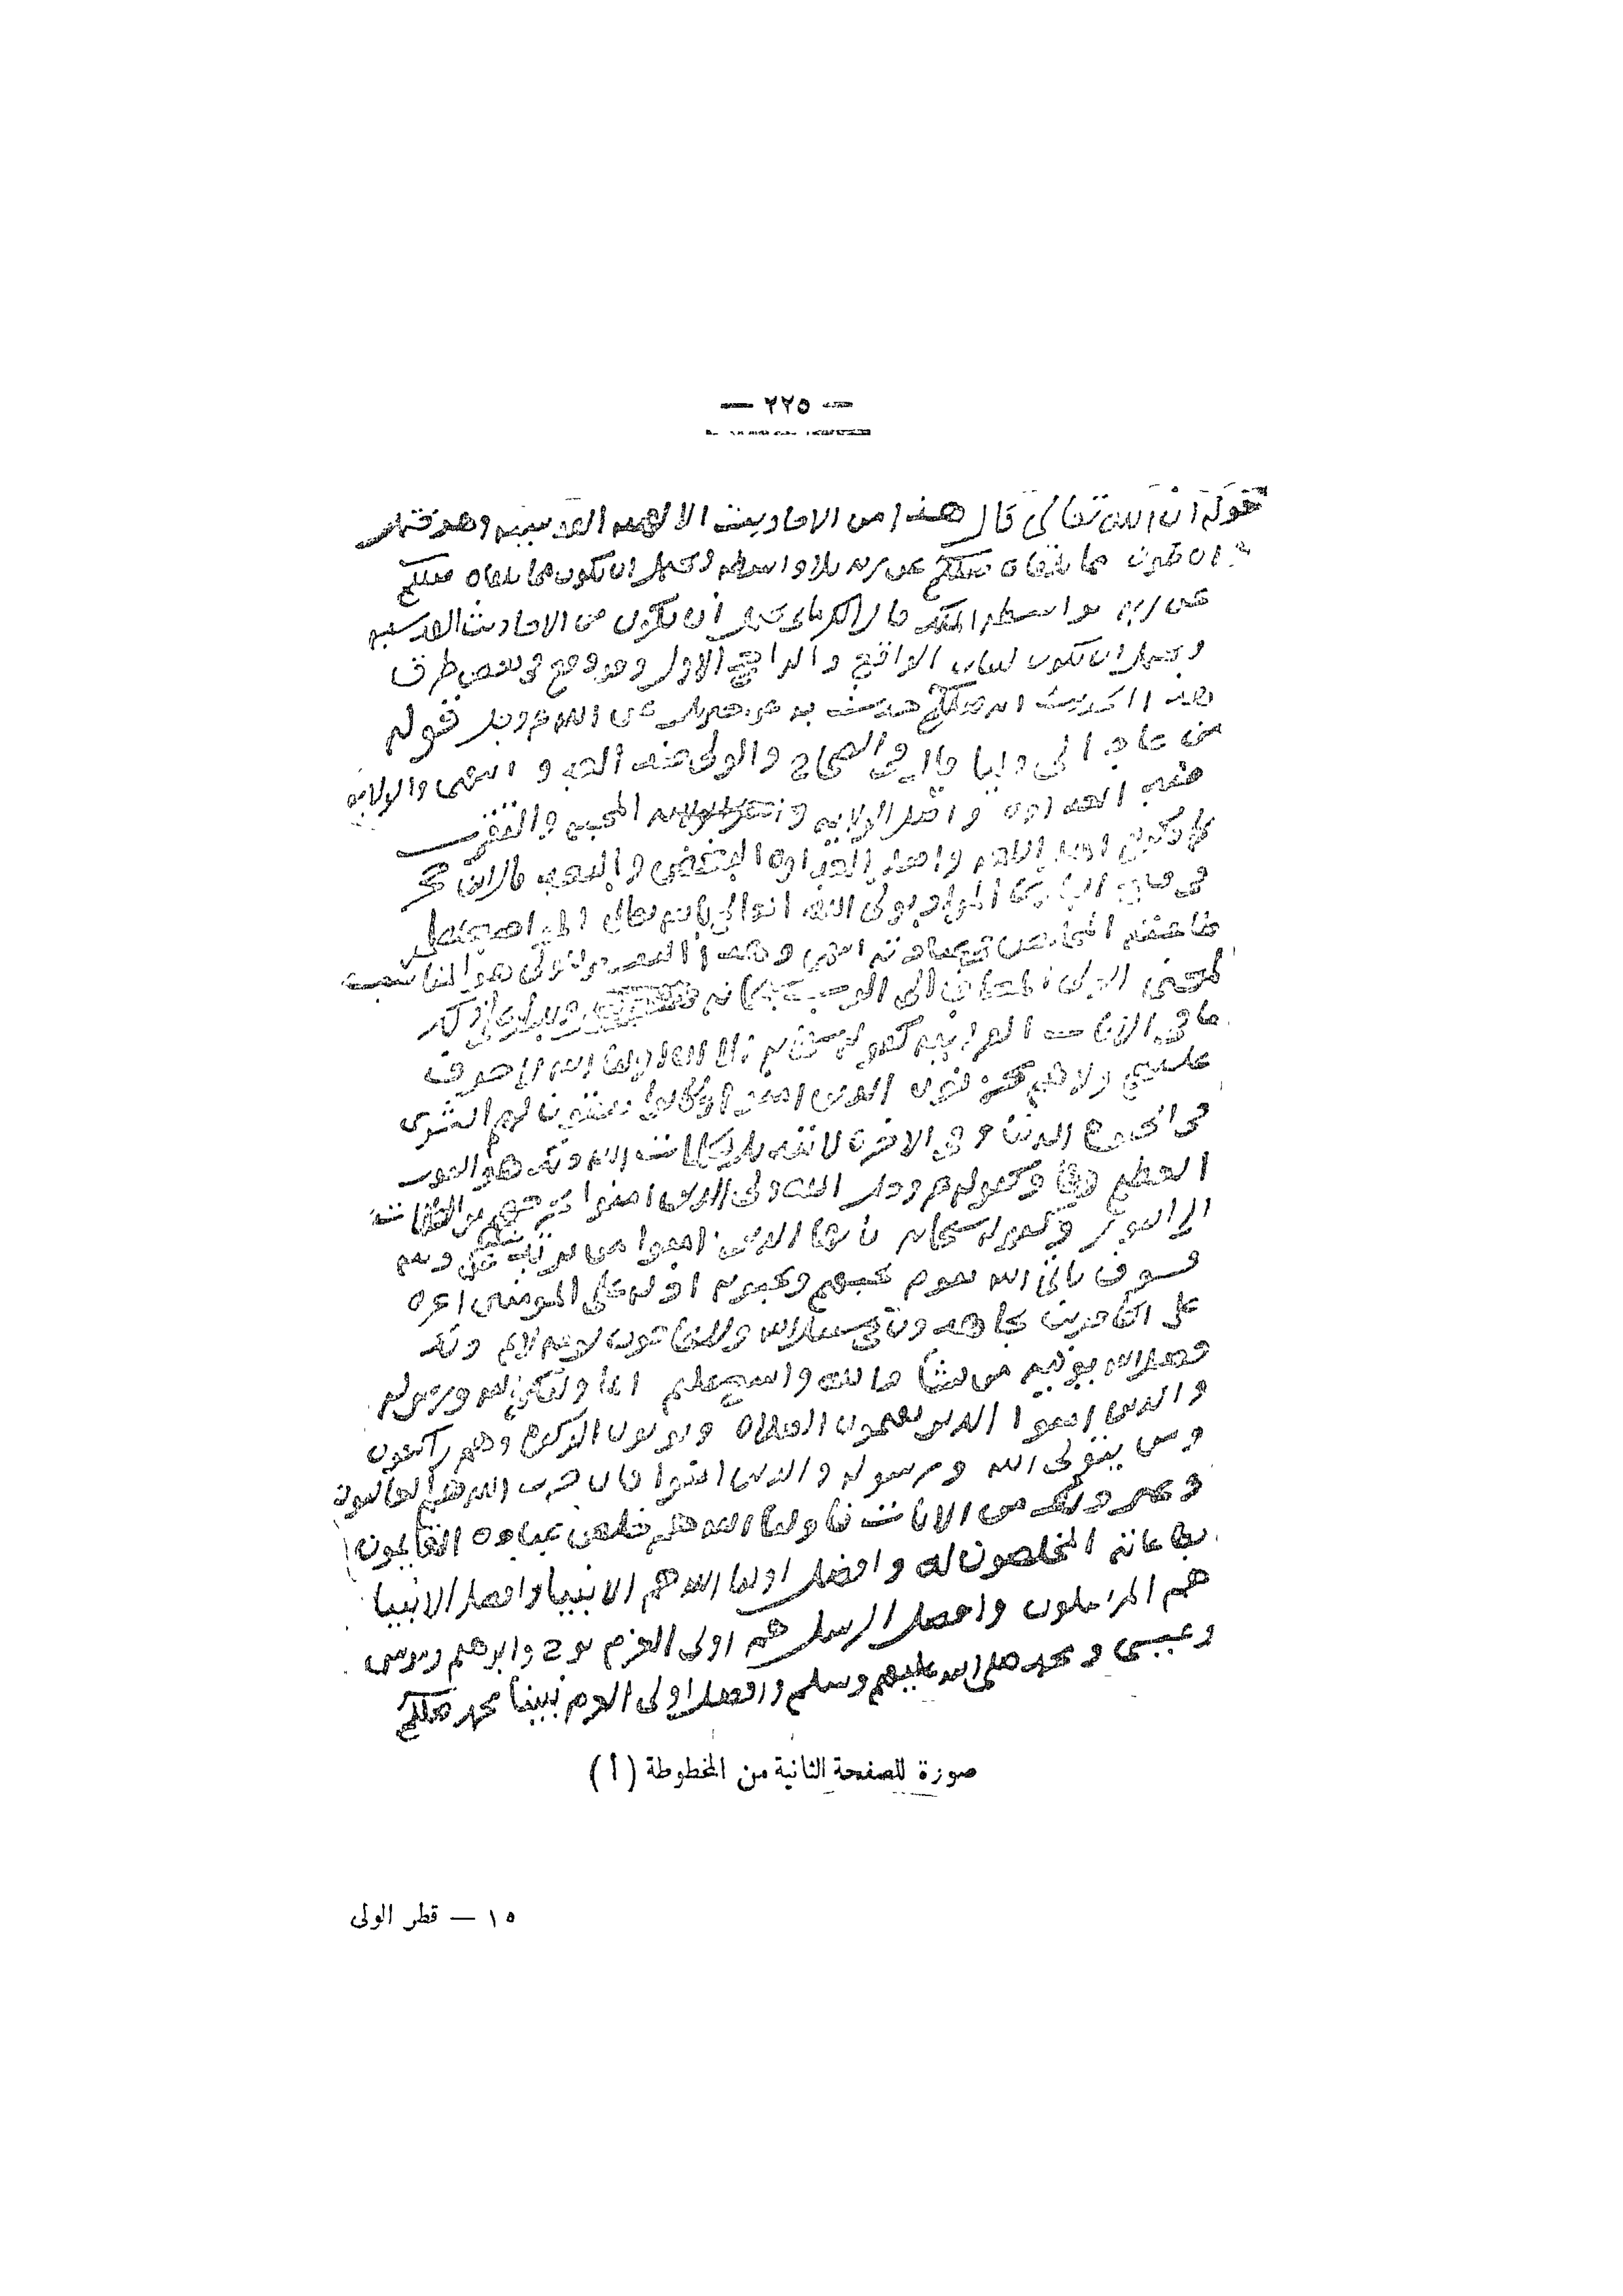 — ٢٢٥ —
قوله ان الله تعالى قال هذا من الاحاديث الالهيه القدسيه وهو يحتمل
ان يكون مما تلقاه صلعم عن ربه بلا واسطه ويحتمل ان يكون مما تلقاه صلعم
عن ربه بواسطه الملك قال الكرماني يحتمل أن يكون من الاحاديث القدسيه
ويحتمل ان يكون لبيان الواقع والراجح الاول وقد وقع في بعض طرق
هذا الحديث ان صلعم حدث به عن جبريل عن الله عز وجل قوله
من عادا لي وليا قال في الصحاح والولي ضد العدو انتهى والولايه
ضد العداوه واصل الولايه المحبه والتقرب
كما ذكره اهل اللغه واصل العداوه البغض والبعد قال ابن حجر
في فتح الباري المراد بولي الله العالم بالله تعالى المواظب على
طاعته المخلص في عبادته انتهى وهذا التفسير للولي هو المناسب
لمعنى الولي المضاف الى الرب
ما في الايات القرانيه كقوله سبحانه الا ان اوليا الله لا خوف
عليهم ولا هم يحزنون الذين امنوا وكانوا يتقون لهم البشرى
في الحيوه الدنيا وفي الاخره لا تبديل لكلمات الله ذلك هو الفوز
العظيم وكقوله عز وجل الله ولي الذين امنوا يخرجهم من الظلمات
الى النور وكقوله سبحانه يا ايها الذين امنوا من يرتد منكم عن دينه
فسوف ياتي الله بقوم يحبهم ويحبونه اذله على المومنين اعزه
على الكافرين يجاهدون في سبيل الله ولا يخافون لومه لايم ذلك
فضل الله يوتيه من يشا والله واسع عليم انما وليكم الله ورسوله
والذين امنوا الذين يقيمون الصلاه ويوتون الزكوه وهم راكعون
ومن يتولى الله ورسوله والذين امنوا فان حزب الله هم الغالبون
وغير ذلك من الايات فأوليا الله هم خلص عباده القايمون
بطاعاته المخلصون له وافضل اوليا الله هم الانبيا وافضل الانبيا
هم المرسلون وافضل الرسل هم اولى العزم نوح وابرهيم وموسى
وعيسى ومحمد صلى الله عليهم وسلم وافضل اولى العزم نبينا محمد صلعم
صورة للصفحة الثانية من المخطوطة (أ)
١٥ — قطر الولى